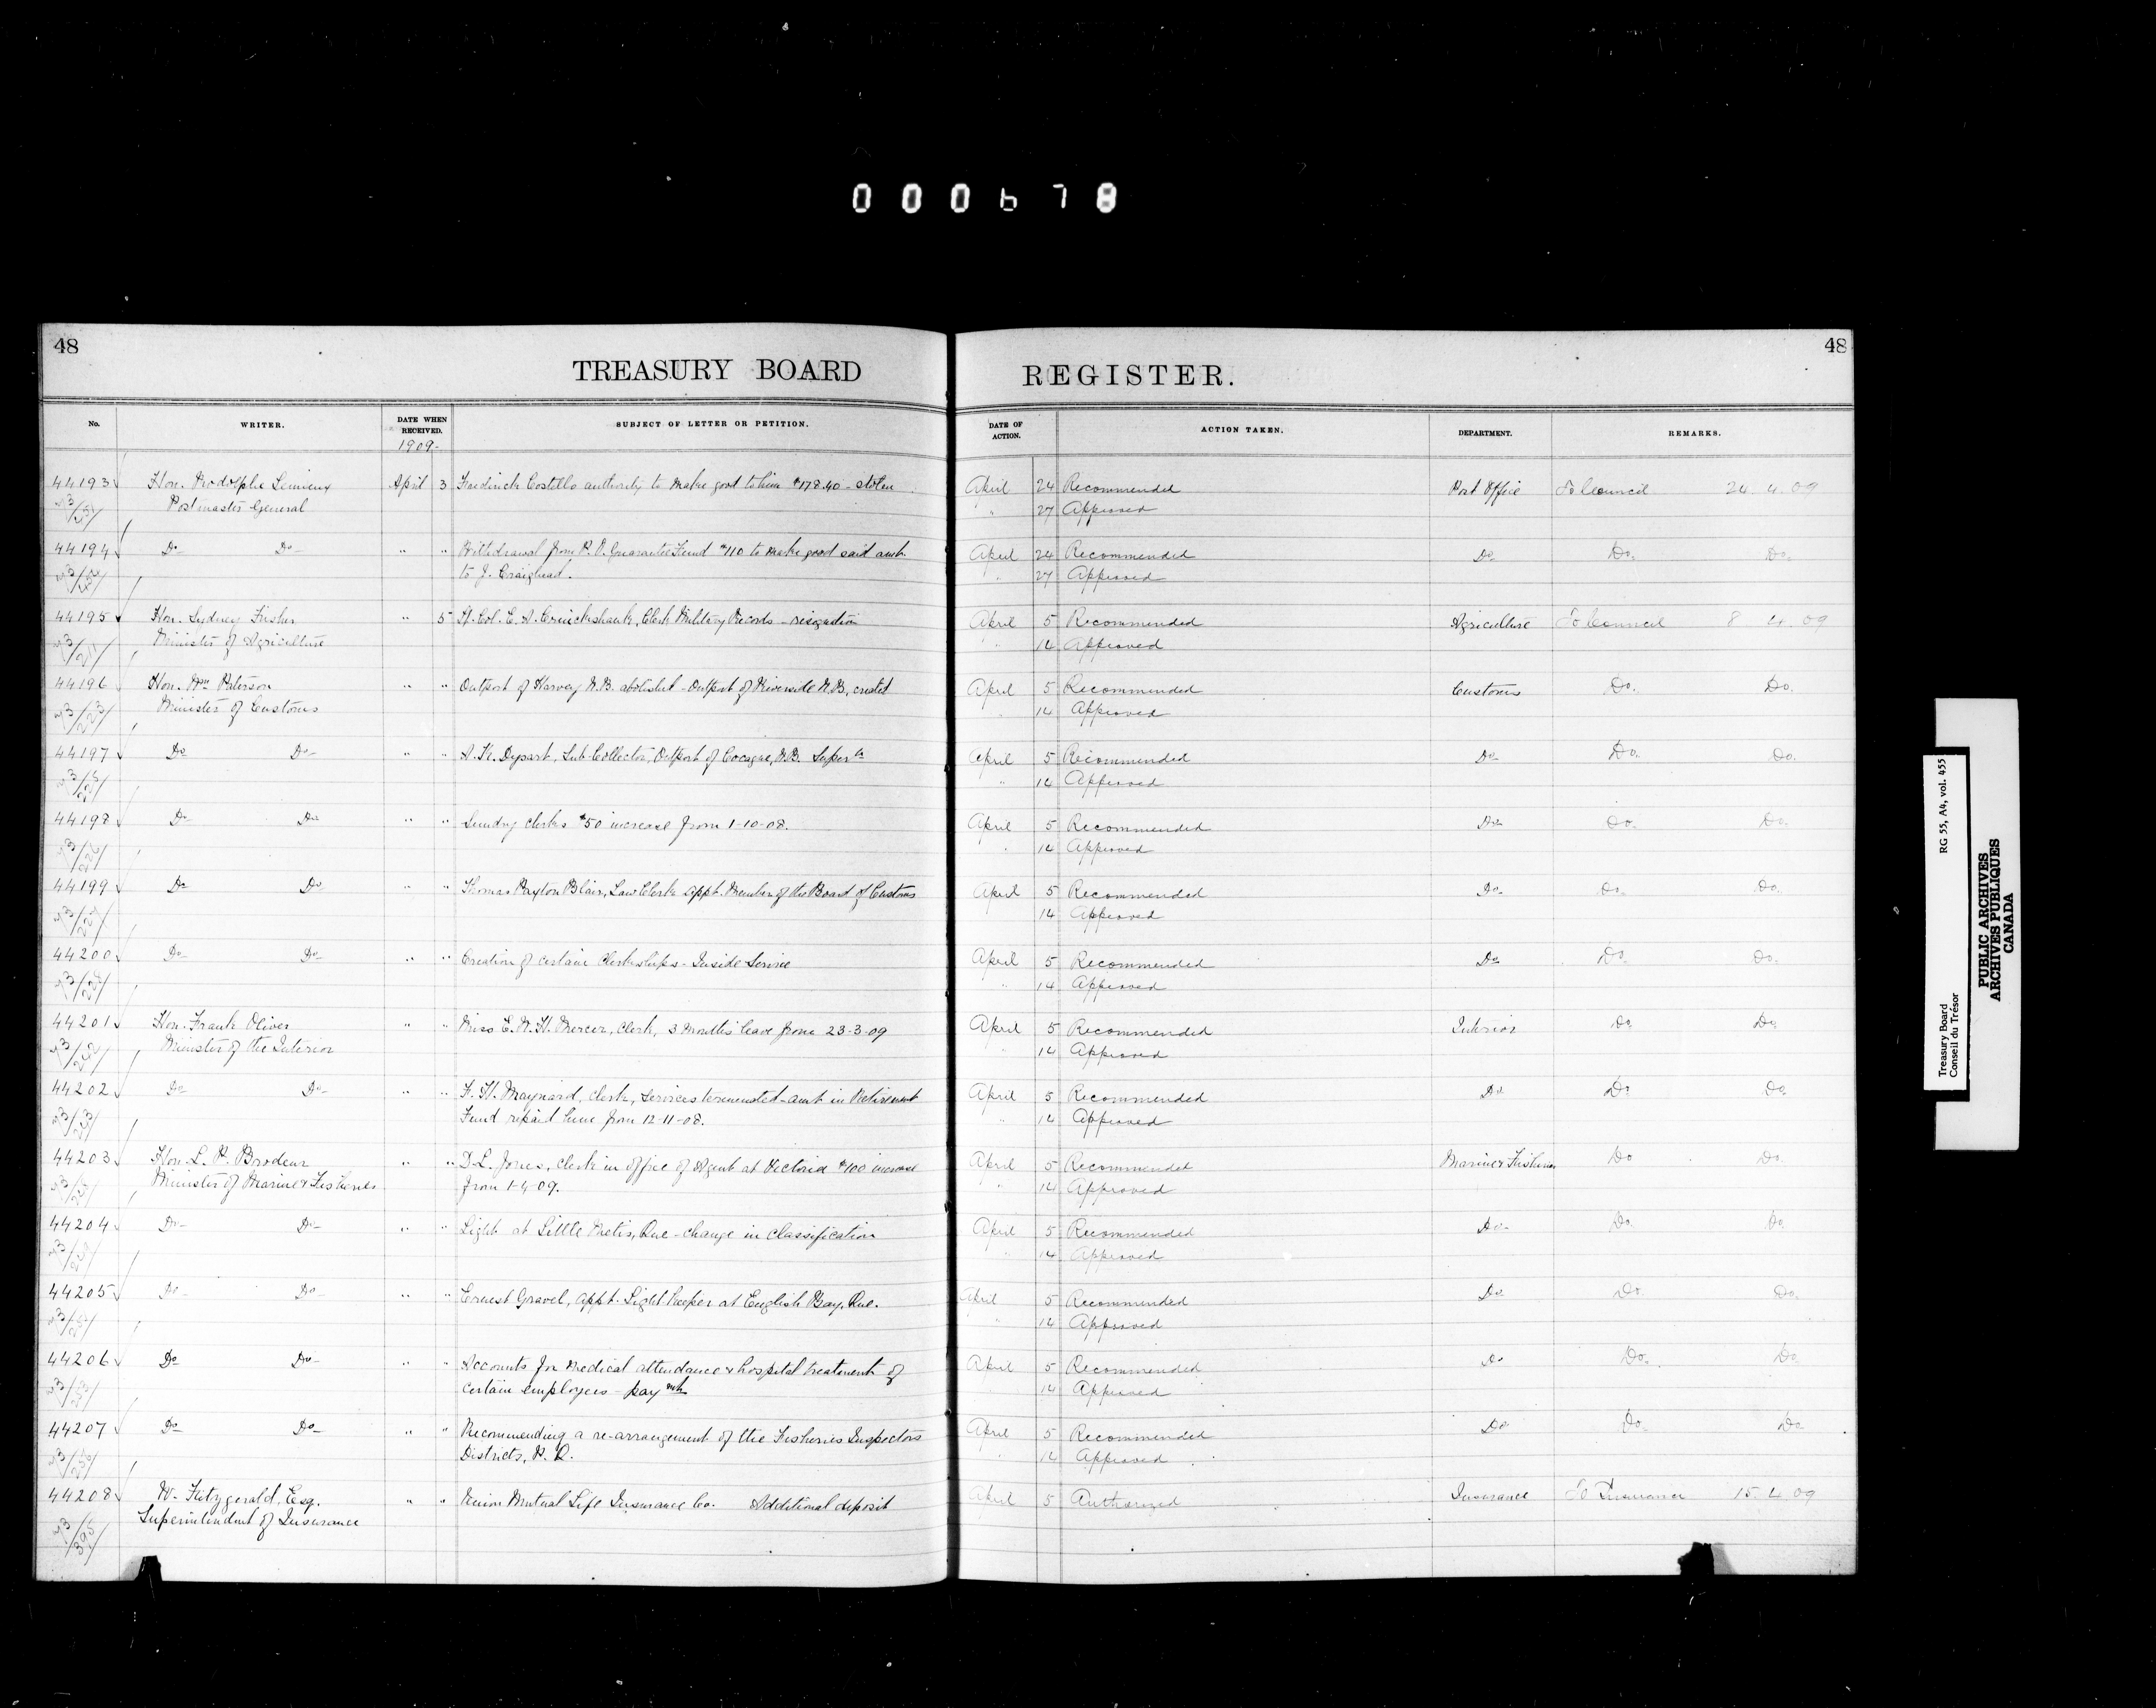 000678
48
TREASURY BOARD REGISTER.
48
No. WRITER. DATE WHEN RECEIVED. SUBJECT OF LETTER OR PETITION. DATE OF ACTION. ACTION TAKEN. DEPARTMENT. REMARKS.
1909-
44193 Hon. Rodolphe Lemieux April 3 Fredrick Costello authority to make good to him $178.40 - stolen April 24 Recommended Post Office To Council 24.4.09
Postmaster General " 27 Approved
44194 Do- Do- " " Withdrawal from P.O. Guarantee Fund $110 to make good said amt. April 24 Recommended Do Do. Do.
to J. Craighead. " 27 Approved
44195 Hon. Sydney Fisher " 5 Lt. Col. E. A. Cruickshank, Clerk Military Records - resignation April 5 Recommended Agriculture To Council 8 4.09
Minister of Agriculture " 14 Approved
44196 Hon. Wm Paterson " " Outport of Harvey N.B. abolished - Outport of Riverside N.B. created April 5 Recommended Customs Do. Do.
Minister of Customs " 14 Approved
44197 Do Do- " " A. K. Dysart, Sub-Collector, Outport of Cocagne, N.B. Super'n April 5 Recommended Do- Do. Do.
" 14 Approved
44198 Do- Do- " " Sundry clerks $50 increase from 1-10-08. April 5 Recommended Do- Do. Do.
" 14 Approved
44199 Do Do " " Thomas Paxton Blair, Law Clerk appt. Member of the Board of Customs April 5 Recommended Do- Do. Do.
14 Approved
44200 Do- Do- " " Creation of certain Clerkships - Inside Service April 5 Recommended Do Do. Do.
" 14 Approved
44201 Hon. Frank Oliver " " Miss E. M. H. Mercer, Clerk, 3 months' leave from 23-3-09 April 5 Recommended Interior Do Do.
Minister of the Interior " 14 Approved
44202 Do Do- " " F. H. Maynard, Clerk, services terminated - amt in Retirement April 5 Recommended Do Do Do.
Fund repaid him from 12-11-08. " 14 Approved
44203 Hon. L. P. Brodeur " " D. L. Jones, Clerk in office of Agent at Victoria $100 increase April 5 Recommended Marine & Fisheries Do Do.
Minister of Marine & Fisheries from 1-4-09. " 14 Approved
44204 Do- Do- " " Light at Little Metis, Que - change in classification April 5 Recommended Do- Do. Do.
" 14 Approved
44205 Do- Do- " " Ernest Gravel, appt. Light keeper at English Bay, Que. April 5 Recommended Do Do Do.
" 14 Approved
44206 Do Do- " " Accounts for medical attendance & hospital treatment of April 5 Recommended Do Do. Do
certain employees - paymt 14 Approved
44207 Do Do- " " Recommending a re-arrangement of the Fisheries Inspectors April 5 Recommended Do Do. Do
Districts, P. Q. 14 Approved
44208 W. Fitzgerald, Esq. " " Union Mutual Life Insurance Co. Additional deposit April 5 Authorized Insurance To Insurance 15.4.09
Superintendent of Insurance
Treasury Board RG 55, A4, vol. 455
Conseil du Trésor
PUBLIC ARCHIVES
ARCHIVES PUBLIQUES
CANADA